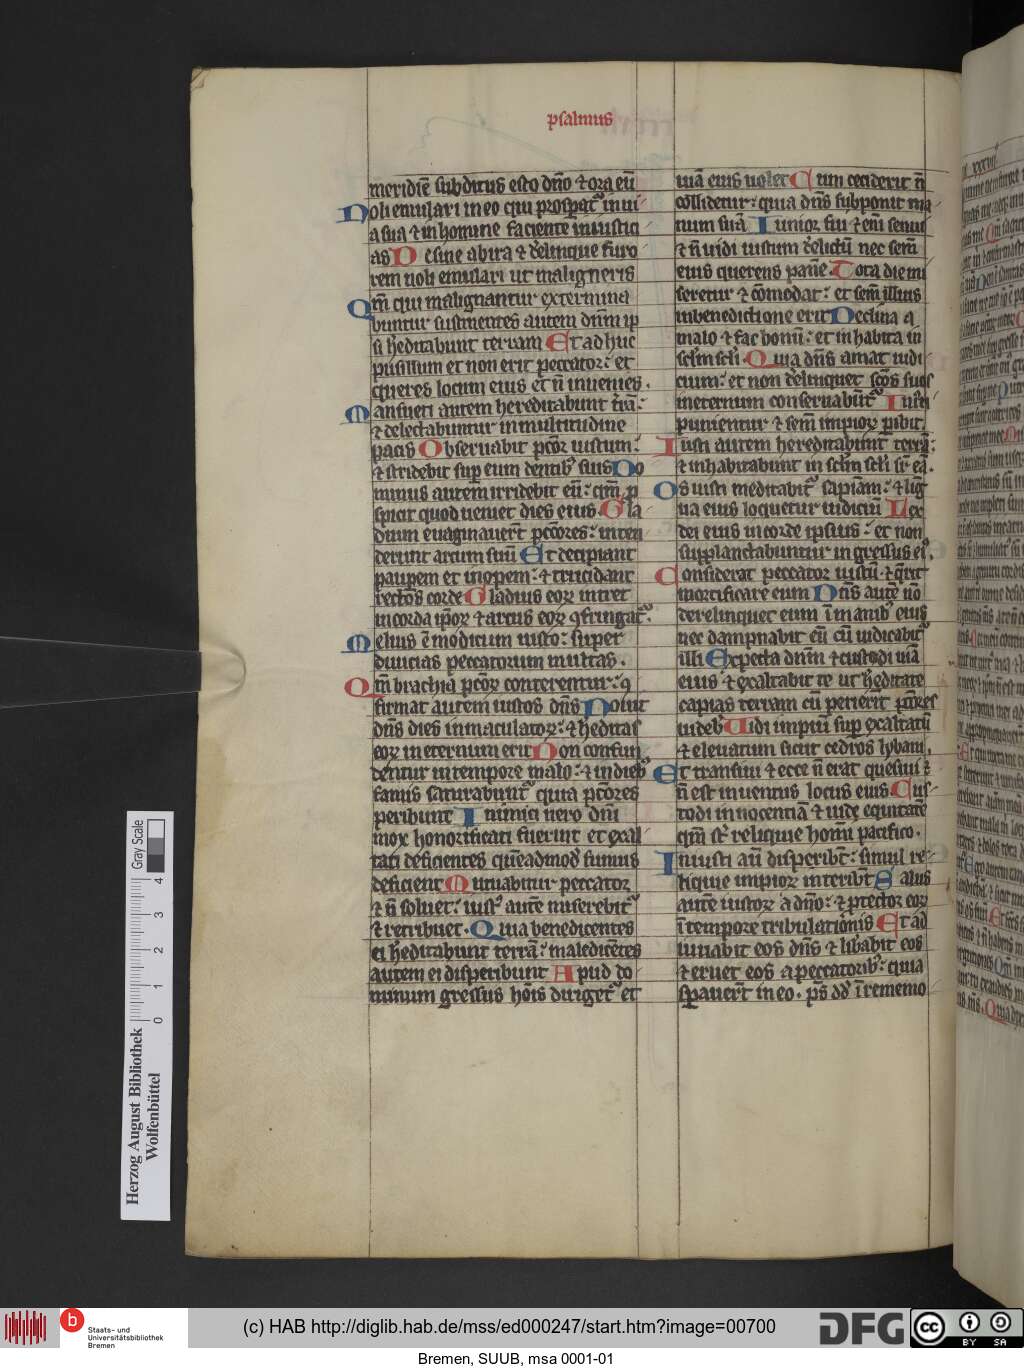 psalmus
meridiē subditus esto dn̄o ⁊ ora eū
Noli emulari in eo qui prosꝑat᷑ in ui
a sua ⁊ in homine faciente iniustici
as Desine ab ira ⁊ d̄elinque furo
rem noli emulari ut maligneris
Qm̄ qui malignantur extermina
buntur sustinentes autem dn̄m ip
si h̄editabunt terram Et adhuc
pusillum et non erit peccator: et
queres locum eius et n̄ inuenies.
Mansueti autem hereditabunt t̄rā:
⁊ delectabuntur in multitudine
pacis Obseruabit pc̄or iustum:
⁊ stridebit suꝑ eum dentib᷒ suis Do
minus autem irridebit eū: qm̄ ꝓ
spicit quod ueniet dies eius. Gla
dium euaginauer̄t pc̄cores: inten
derunt arcum suū Et decipiant
pauꝑem et inopem: ⁊ trucidant
rectos corde Gladius eoꝝ intret
in corda ip̄oꝝ ⁊ arcus eoꝝ ꝯfringat᷑.
Melius ē modicum iusto: super
diuicias peccatorum multas.
Qm̄ brachia pc̄oꝝ conterentur: ꝯ
firmat autem iustos dn̄s Nouit
dn̄s dies inmaculatoꝝ: ⁊ h̄editas
eoꝝ in eternum erit Non confun
dentur in tempore malo: ⁊ in dieb᷒
famis saturabunt᷑ quia pc̄ores
peribunt Inimici uero dn̄i
mox honorificati fuerint et exal
tati deficientes quēadmod̄ fumus
deficient Mutuabitur peccator
⁊ n̄ soluet: iust᷒ autē miserebit᷑
⁊ retribuet. Quia benedicentes
ei h̄editabunt terrā: maledic̄etes
autem ei disperibunt Apud do
minum gressus hōis diriget᷑ et
uiā eius uolet Cum ceciderit n̄
collidetur: quia dn̄s supponit ma
num suā Iunior fui ⁊ em̄ senui
⁊ n̄ uidi iustum d̄elictū nec sem̄
eius querens panē Tota die mi
seretur ⁊ cōmodat: et sem̄ illius
in benedictione erit Declina a
malo ⁊ fac bonū: et inhabita in
sc̄lm sc̄li. Quia dn̄s amat iudi
cium: et non d̄elinquet sc̄os suos
in eternum conseruabūt᷑ Iniusti
punientur ⁊ sem̄ impioꝝ ꝑibit
Iusti autem hereditabunt terrā:
⁊ inhabitabunt in sc̄lm sc̄li sr̄ eā.
Os iusti meditabit᷑ sapiām: ⁊ lig̅
ua eius loquetur iudiciū Lex
dei eius in corde ipsius: et non
supplantabuntur in gressus ei᷒.
Considerat peccator iustū: ⁊ q̄rit
mortificare eum Dn̄s autē nō
derelinquet eum ī manib᷒ eius
nec dampnabit eū cū iudicabit᷑
illi Expecta dnm̄ ⁊ custodi uiā
eius ⁊ exaltabit te ut h̄editate
capias terram cū perierīt pc̄cores
uideb᷒ Uidi impiū suꝑ exaltatū
⁊ eleuatum sicut cedros lybani.
Et transiui ⁊ ecce n̄ erat quesiui ⁊
n̄ est inuentus locus eius Cus
todi innocentiā ⁊ uide equitatē
qm̄ st̄ reliquie homi pacifico.
Iniusti aū disperibt̄: simul re
liquie impioꝝ interibt̄ Salus
autē iustoꝝ a dn̄o: ⁊ ꝓtector eoꝝ
ī tempore tribulationis Et ad
iuuabit eos dn̄s ⁊ lib̄abit eos
⁊ eruet eos a peccatorib᷒: quia
sꝑauer̄t in eo. p̄s dd̄ ī rememo
Herzog August Bibliothek
Wolfenbüttel
0 1 2 3 4
Gray Scale
b
Staats- und
Universitätsbibliothek
Bremen
(c) HAB http://diglib.hab.de/mss/ed000247/start.htm?image=00700
DFG
cc
BY SA
Bremen, SUUB, msa 0001-01